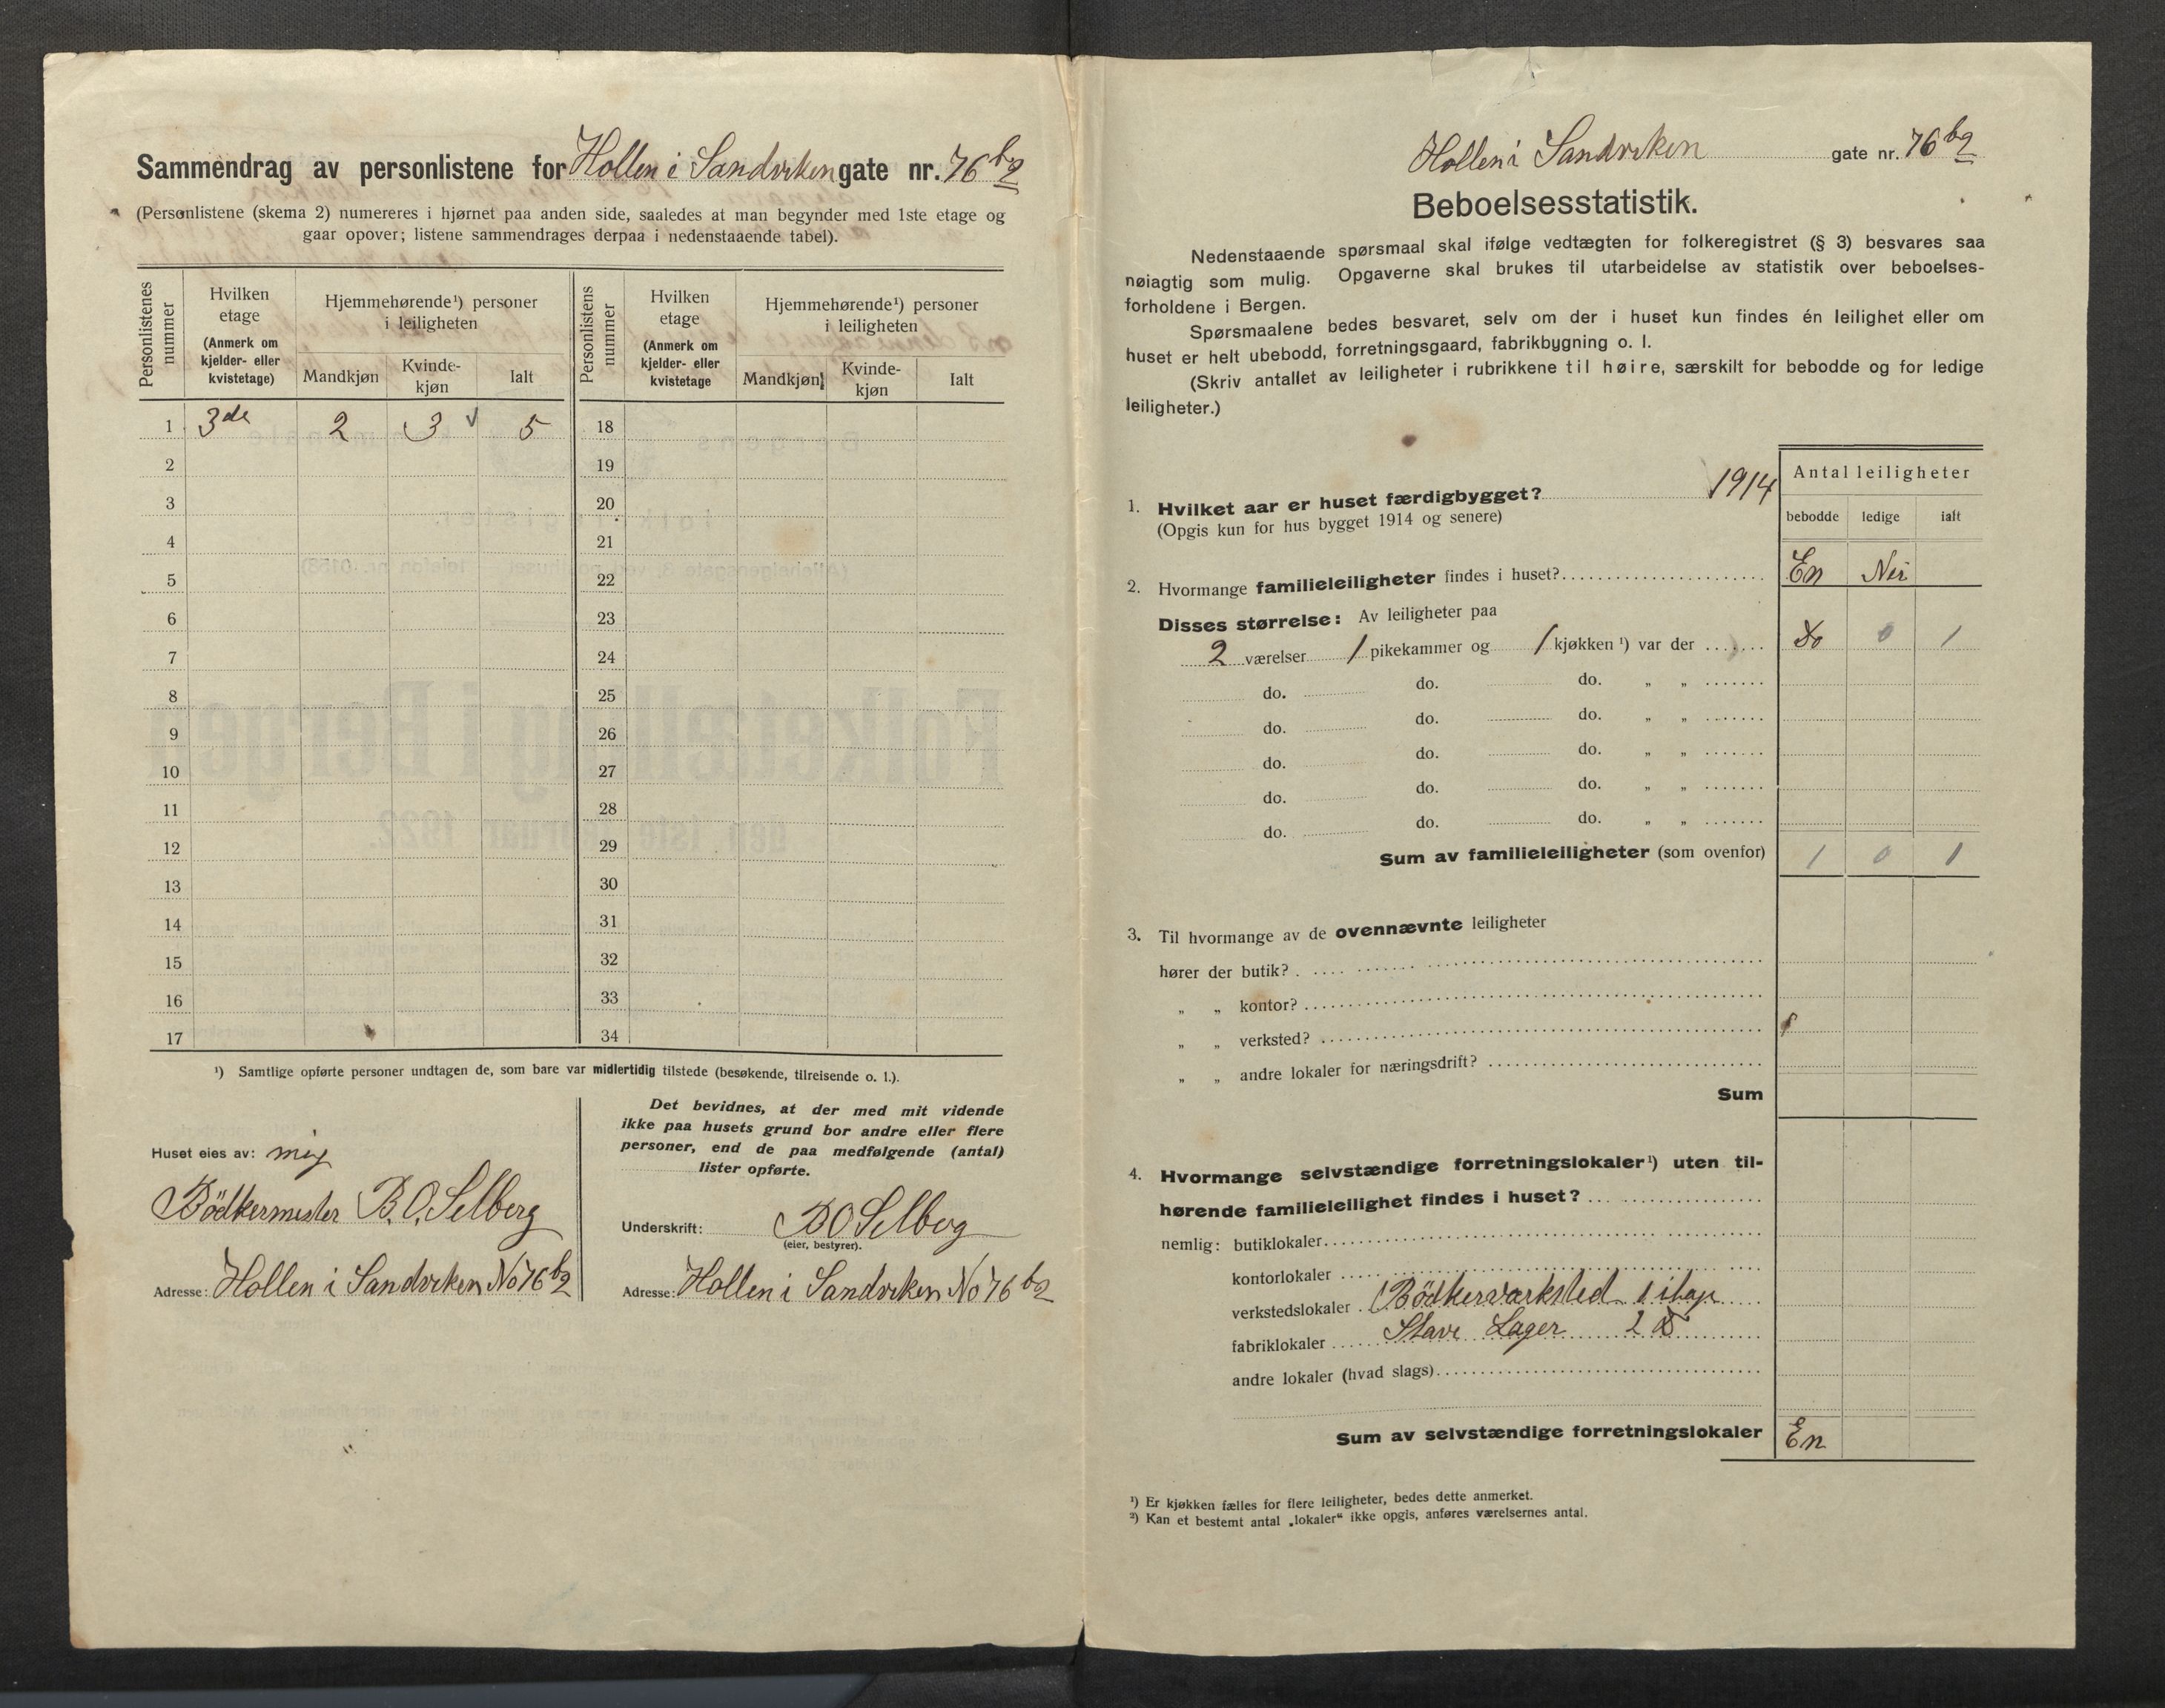 Sammendrag av personlistene for Hollen i Sandviken gate nr. 76 b2
(Personlistene (skema 2) numereres i hjørnet paa anden side, saaledes at man begynder med 1ste etage og
gaar opover; listene sammendrages derpaa i nedenstaaende tabel).
Personlistenes nummer
Hvilken etage
(Anmerk om kjelder- eller kvistetage)
Hjemmehørende¹) personer i leiligheten
Mandkjøn
Kvinde-kjøn
Ialt
Personlistens nummer
Hvilken etage
(Anmerk om kjelder- eller kvistetage
Hjemmehørende¹) personer i leiligheten
Mandkjøn
Kvinde-kjøn
Ialt
1 3de 2 3 5 18
2 19
3 20
4 21
5 22
6 23
7 24
8 25
9 26
10 27
11 28
12 29
13 30
14 31
15 32
16 33
17 34
¹) Samtlige opførte personer undtagen de, som bare var midlertidig tilstede (besøkende, tilreisende o. l.).
Huset eies av: mig
Bödkermester B. O. Selberg
Adresse: Hollen i Sandviken No 76 b2
Det bevidnes, at der med mit vidende
ikke paa husets grund bor andre eller flere
personer, end de paa medfølgende (antal)
lister opførte.
Underskrift: B O Selberg
(eier, bestyrer).
Adresse: Hollen i Sandviken No 76 b2
Hollen i Sandviken gate nr. 76 b2
Beboelsesstatistik.
Nedenstaaende spørsmaal skal ifølge vedtægten for folkeregistret (§ 3) besvares saa
nøiagtig som mulig. Opgaverne skal brukes til utarbeidelse av statistik over beboelses-
forholdene i Bergen.
Spørsmaalene bedes besvaret, selv om der i huset kun findes én leilighet eller om
huset er helt ubebodd, forretningsgaard, fabrikbygning o. l.
(Skriv antallet av leiligheter i rubrikkene til høire, særskilt for bebodde og for ledige
leiligheter.)
Antal leiligheter
bebodde ledige ialt
1. Hvilket aar er huset færdigbygget? 1914
(Opgis kun for hus bygget 1914 og senere)
2. Hvormange familieleiligheter findes i huset? En Nei
Disses størrelse: Av leiligheter paa
2 værelser 1 pikekammer og 1 kjøkken ¹) var der do 0 1
do. do. do. " "
do. do. do. " "
do. do. do. " "
do. do. do. " "
do. do. do. " "
Sum av familieleiligheter (som ovenfor) 1 0 1
3. Til hvormange av de ovennævnte leiligheter
hører der butik?
" " kontor?
" " verksted?
" " andre lokaler for næringsdrift?
Sum
4. Hvormange selvstændige forretningslokaler¹) uten til-
hørende familieleilighet findes i huset?
nemlig: butiklokaler
kontorlokaler
verkstedslokaler Bödkerværksted 1 ihap
fabriklokaler Stave Lager 2
andre lokaler (hvad slags)
Sum av selvstændige forretningslokaler En
¹) Er kjøkken fælles for flere leiligheter, bedes dette anmerket.
²) Kan et bestemt antal „lokaler“ ikke opgis, anføres værelsernes antal.